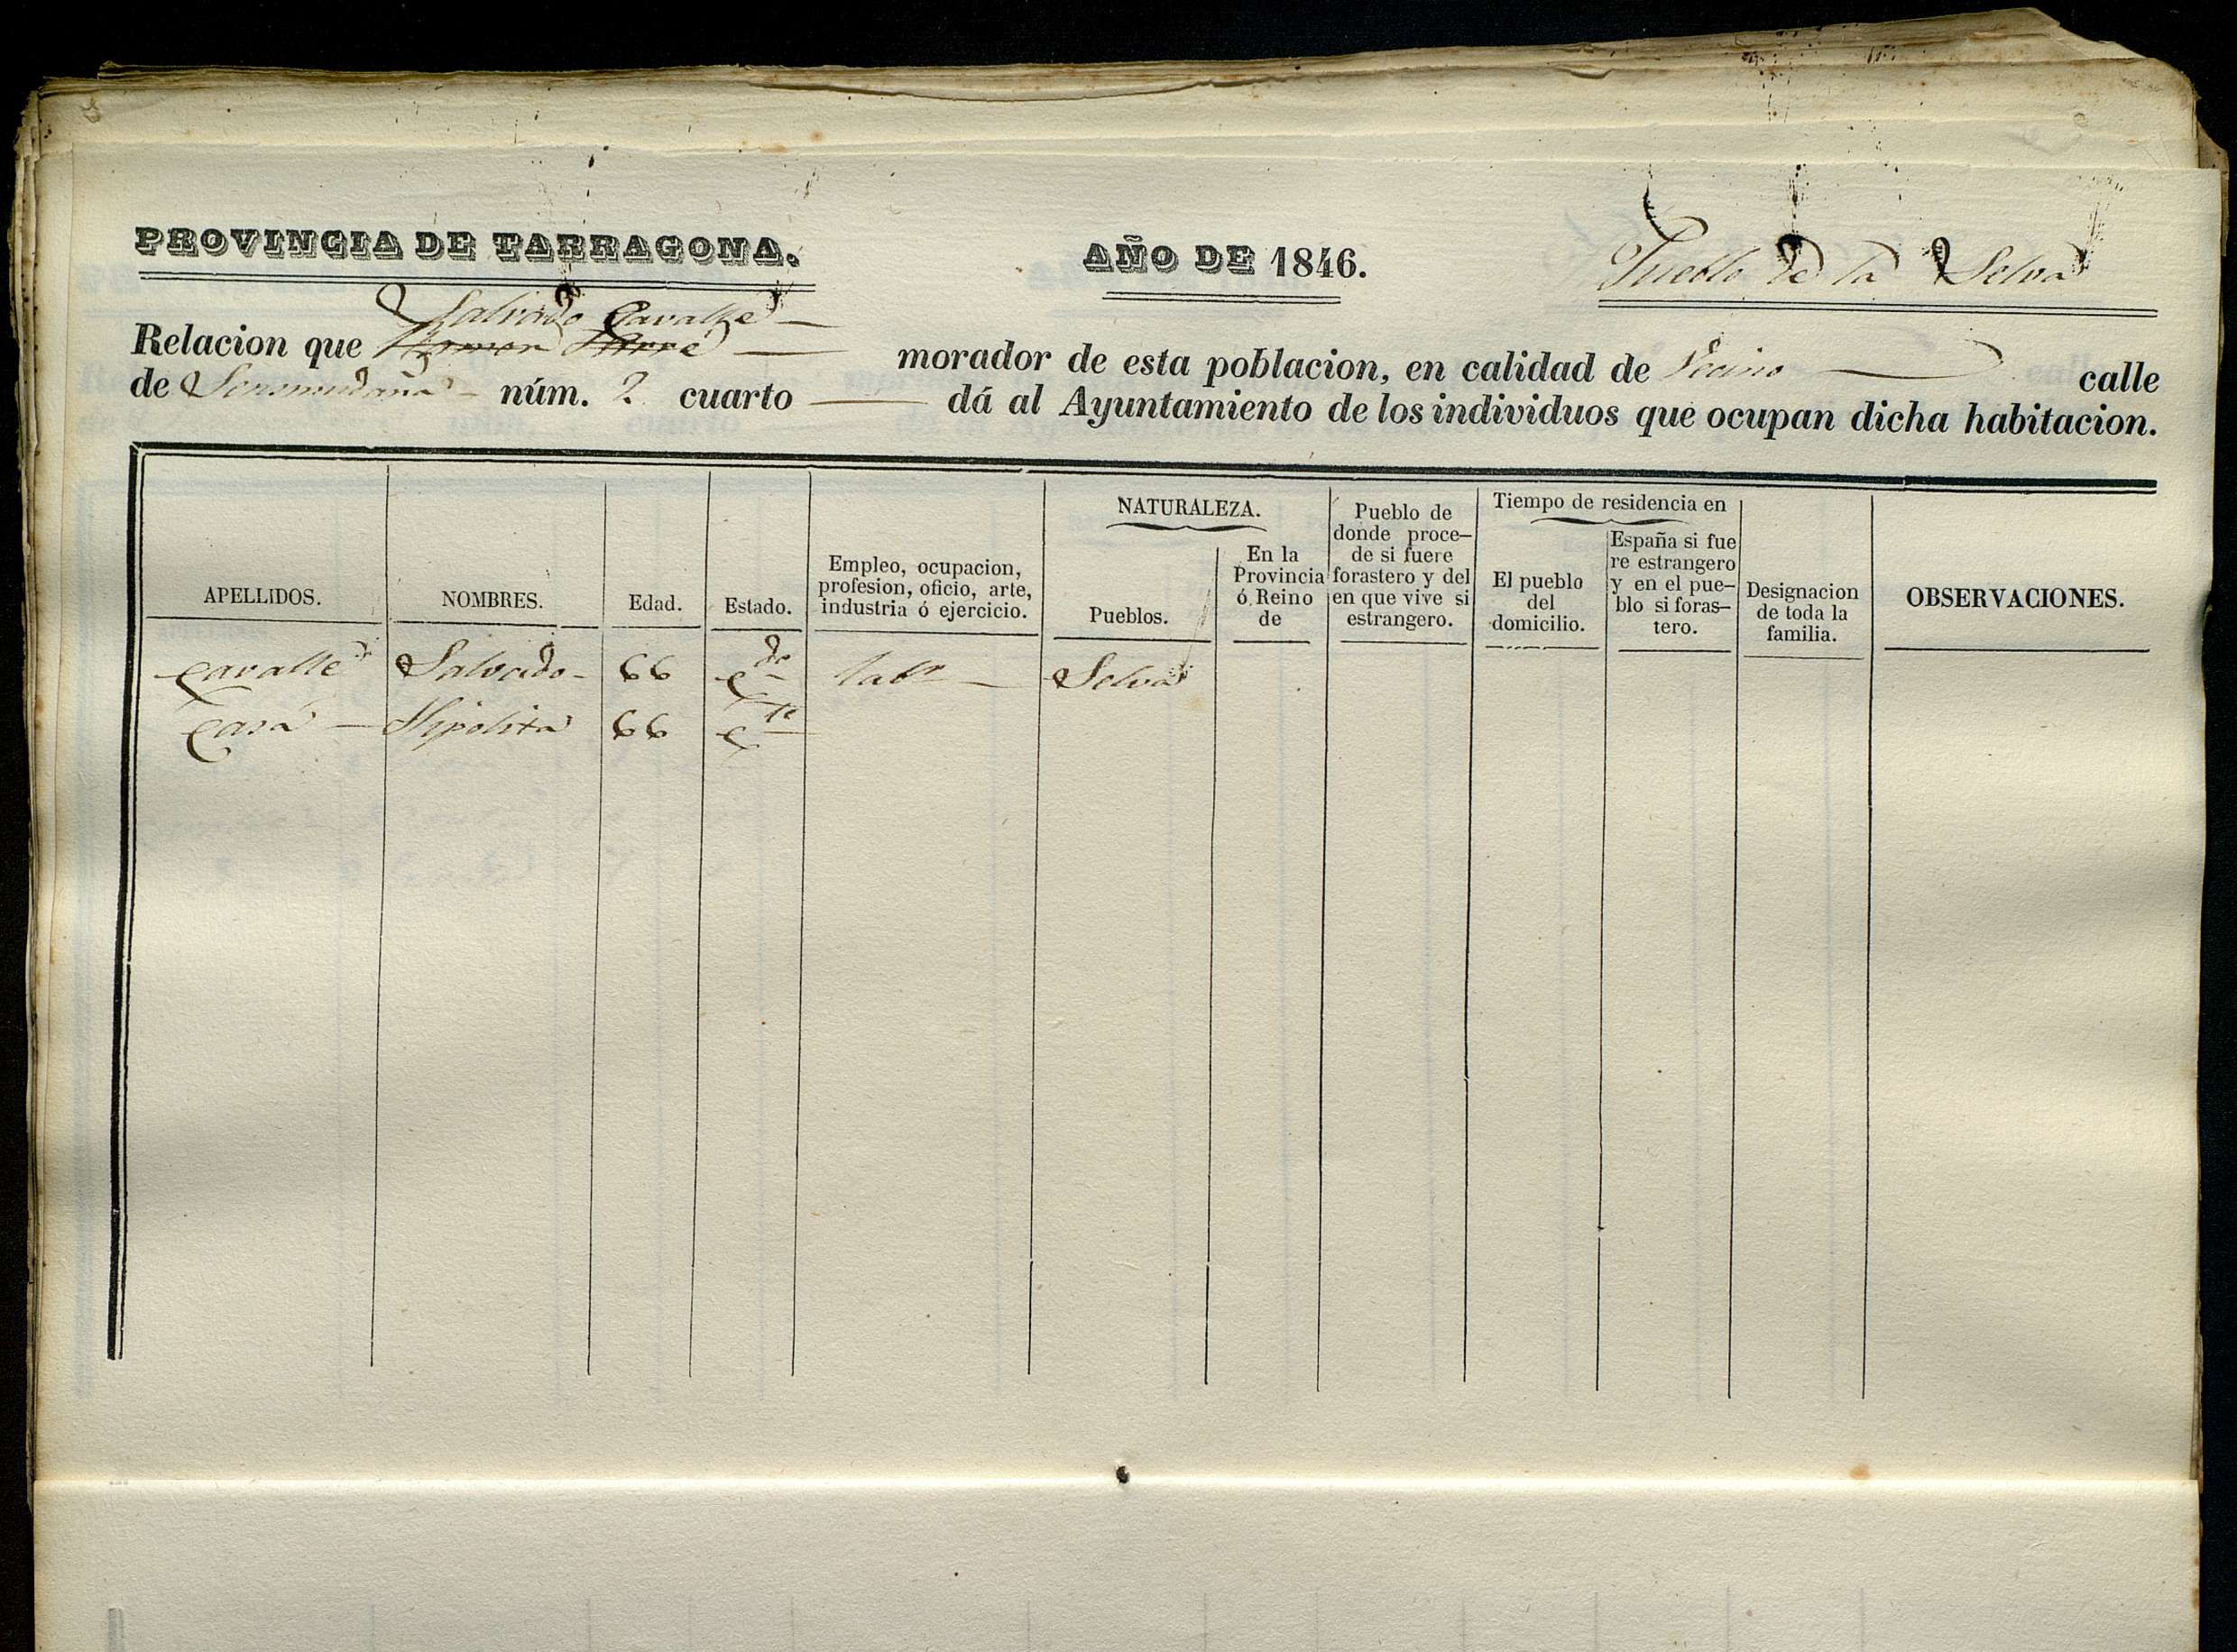 PROVINCIA DE TARRAGONA.
AÑO DE 1846.
Pueblo de la Selva
Salvado Cavalle
Relacion que Ramon morador de esta poblacion, en calidad de Vecino calle
de núm. 2 cuarto — dá al Ayuntamiento de los individuos que ocupan dicha habitacion.
APELLIDOS.
NOMBRES.
Edad.
Estado.
Empleo, ocupacion,
profesion, oficio, arte,
industria ó ejercicio.
NATURALEZA.
Pueblos.
En la
Provincia
ó Reino
de
Pueblo de
donde proce-
de si fuere
forastero y del
en que vive si
estrangero.
Tiempo de residencia en
El pueblo
del
domicilio.
España si fue
re estrangero
y en el pue-
blo si foras-
tero.
Designacion
de toda la
familia.
OBSERVACIONES.
Cavalle Salvado 66 C.do labr Selva
Casá Hipolita 66 C.